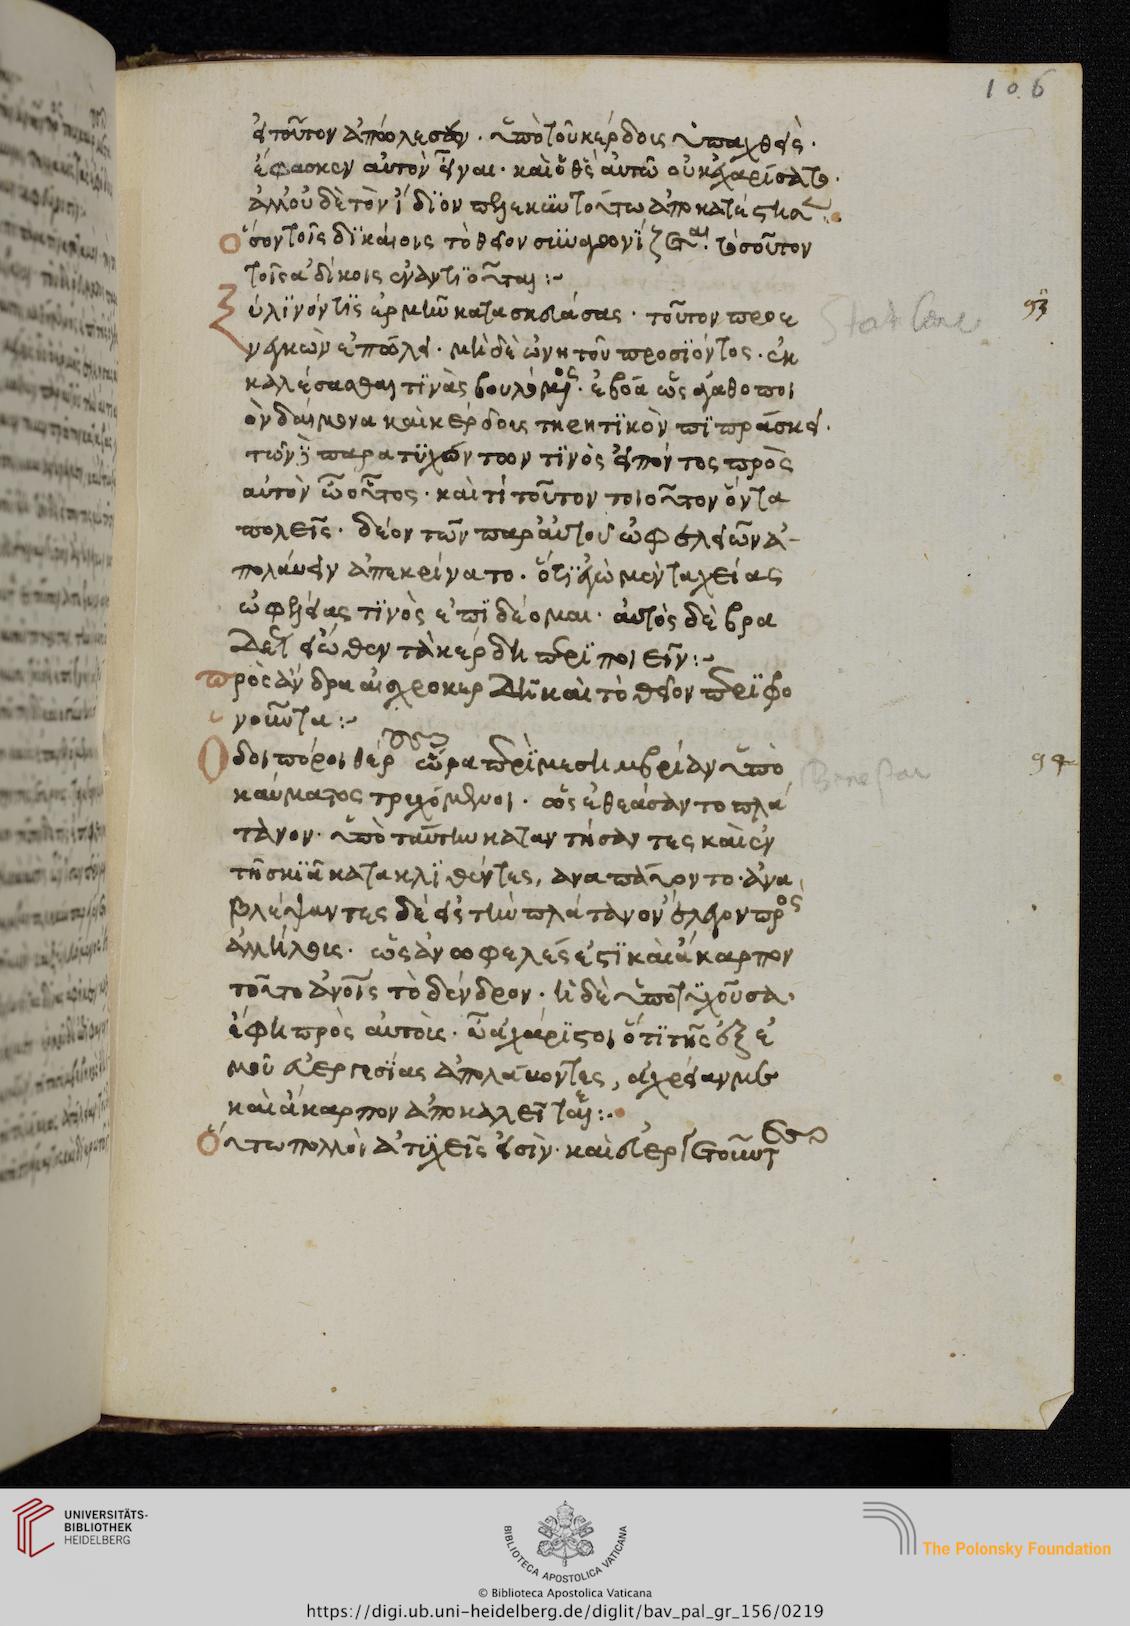 106
εἰ τοῦτον ἀπώλεσεν. ὑπὸ τοῦ κέρδους ὑπαχθεὶς.
ἔφασκεν αὐτὸν εἶναι. καὶ ὁ θεὸς αὐτῶ οὐκ ἐχαρίσατο.
ἀλλ' οὐδὲ τὸν ἴδϊον πέλεκυν τούτω ἀποκατέστησεν:
ὅσον τοῖς δϊκαίοις τὸ θεῖον συναγωνίζεται. τοσοῦτον
τοῖς ἀδίκοις ἐναντϊοῦται:~
ξύλϊνόν τϊς ἑρμῆν κατασκευάσας. τοῦτον προσε
νεγκὼν ἐπώλει. μὴ δὲ ὠνητοῦ προσϊόντος. ἐκ
καλέσασθαι τϊνὰς βουλόμενος. ἐβόα ὡς ἀγαθοποι
ὸν δαίμονα καὶ κέρδους τηρητϊκὸν πϊπράσκει.
τῶν δὲ παρατϋχόντων τϊνὸς εἰπόντος πρὸς
αὐτὸν ὦ οὗτος. καὶ τί τοῦτον τοιοῦτον ὄντα
πωλεῖς. δέον τῶν παρ' αὐτοῦ ὠφελειῶν ἀ-
πολάυειν ἀπεκρίνατο. ὅτϊ ἐγὼ μὲν ταχείας
ὠφελείας τϊνὸς ἐπϊδέομαι. αὐτὸς δὲ βρα
δεῖ εἴωθεν τὰ κέρδη περϊποιεῖν:~
πρὸς ἄνδρα αἰσχροκερδῆ καὶ τὸ θεῖον περϊφρο
νοῦντα:~
93
ὁδοιπόροι θέρους ὥρα περὶ μεσημβρίαν ὑπὸ
καύματος τρυχόμενοι. ὡς ἐθεάσαντο πλά
τανον. ὑπὸ ταύτην καταντήσαντες καὶ ἐν
τῆ σκϊᾶ κατακλϊθέντες, ἀναπάυοντο. ἀνα
βλέψαντες δὲ εἰς τὴν πλάτανον ἔλεγον πρὸς
ἀλλήλους. ὡς ἀνωφελές ἐστϊ καὶ ἄκαρπον
τοῦτο ἀνοις τὸ δένδρον. ἡ δὲ ὑποτϋχοῦσα.
ἔφη πρὸς αὐτοὺς. ὦ ἀχάρϊστοι ὅτϊ τῆς ἐξ ἐ
μοῦ εὐεργεσίας ἀπολάυοντες, ἀχρείαν με
καὶ ἄκαρπον ἀποκαλεῖται:~
οὕτω πολλοὶ ἀτϋχεῖς εἰσὶν. καὶ εὐεργετοῦντ
94
UNIVERSITÄTS-
BIBLIOTHEK
HEIDELBERG
BIBLIOTECA APOSTOLICA VATICANA
The Polonsky Foundation
© Biblioteca Apostolica Vaticana
https://digi.ub.uni-heidelberg.de/diglit/bav_pal_gr_156/0219